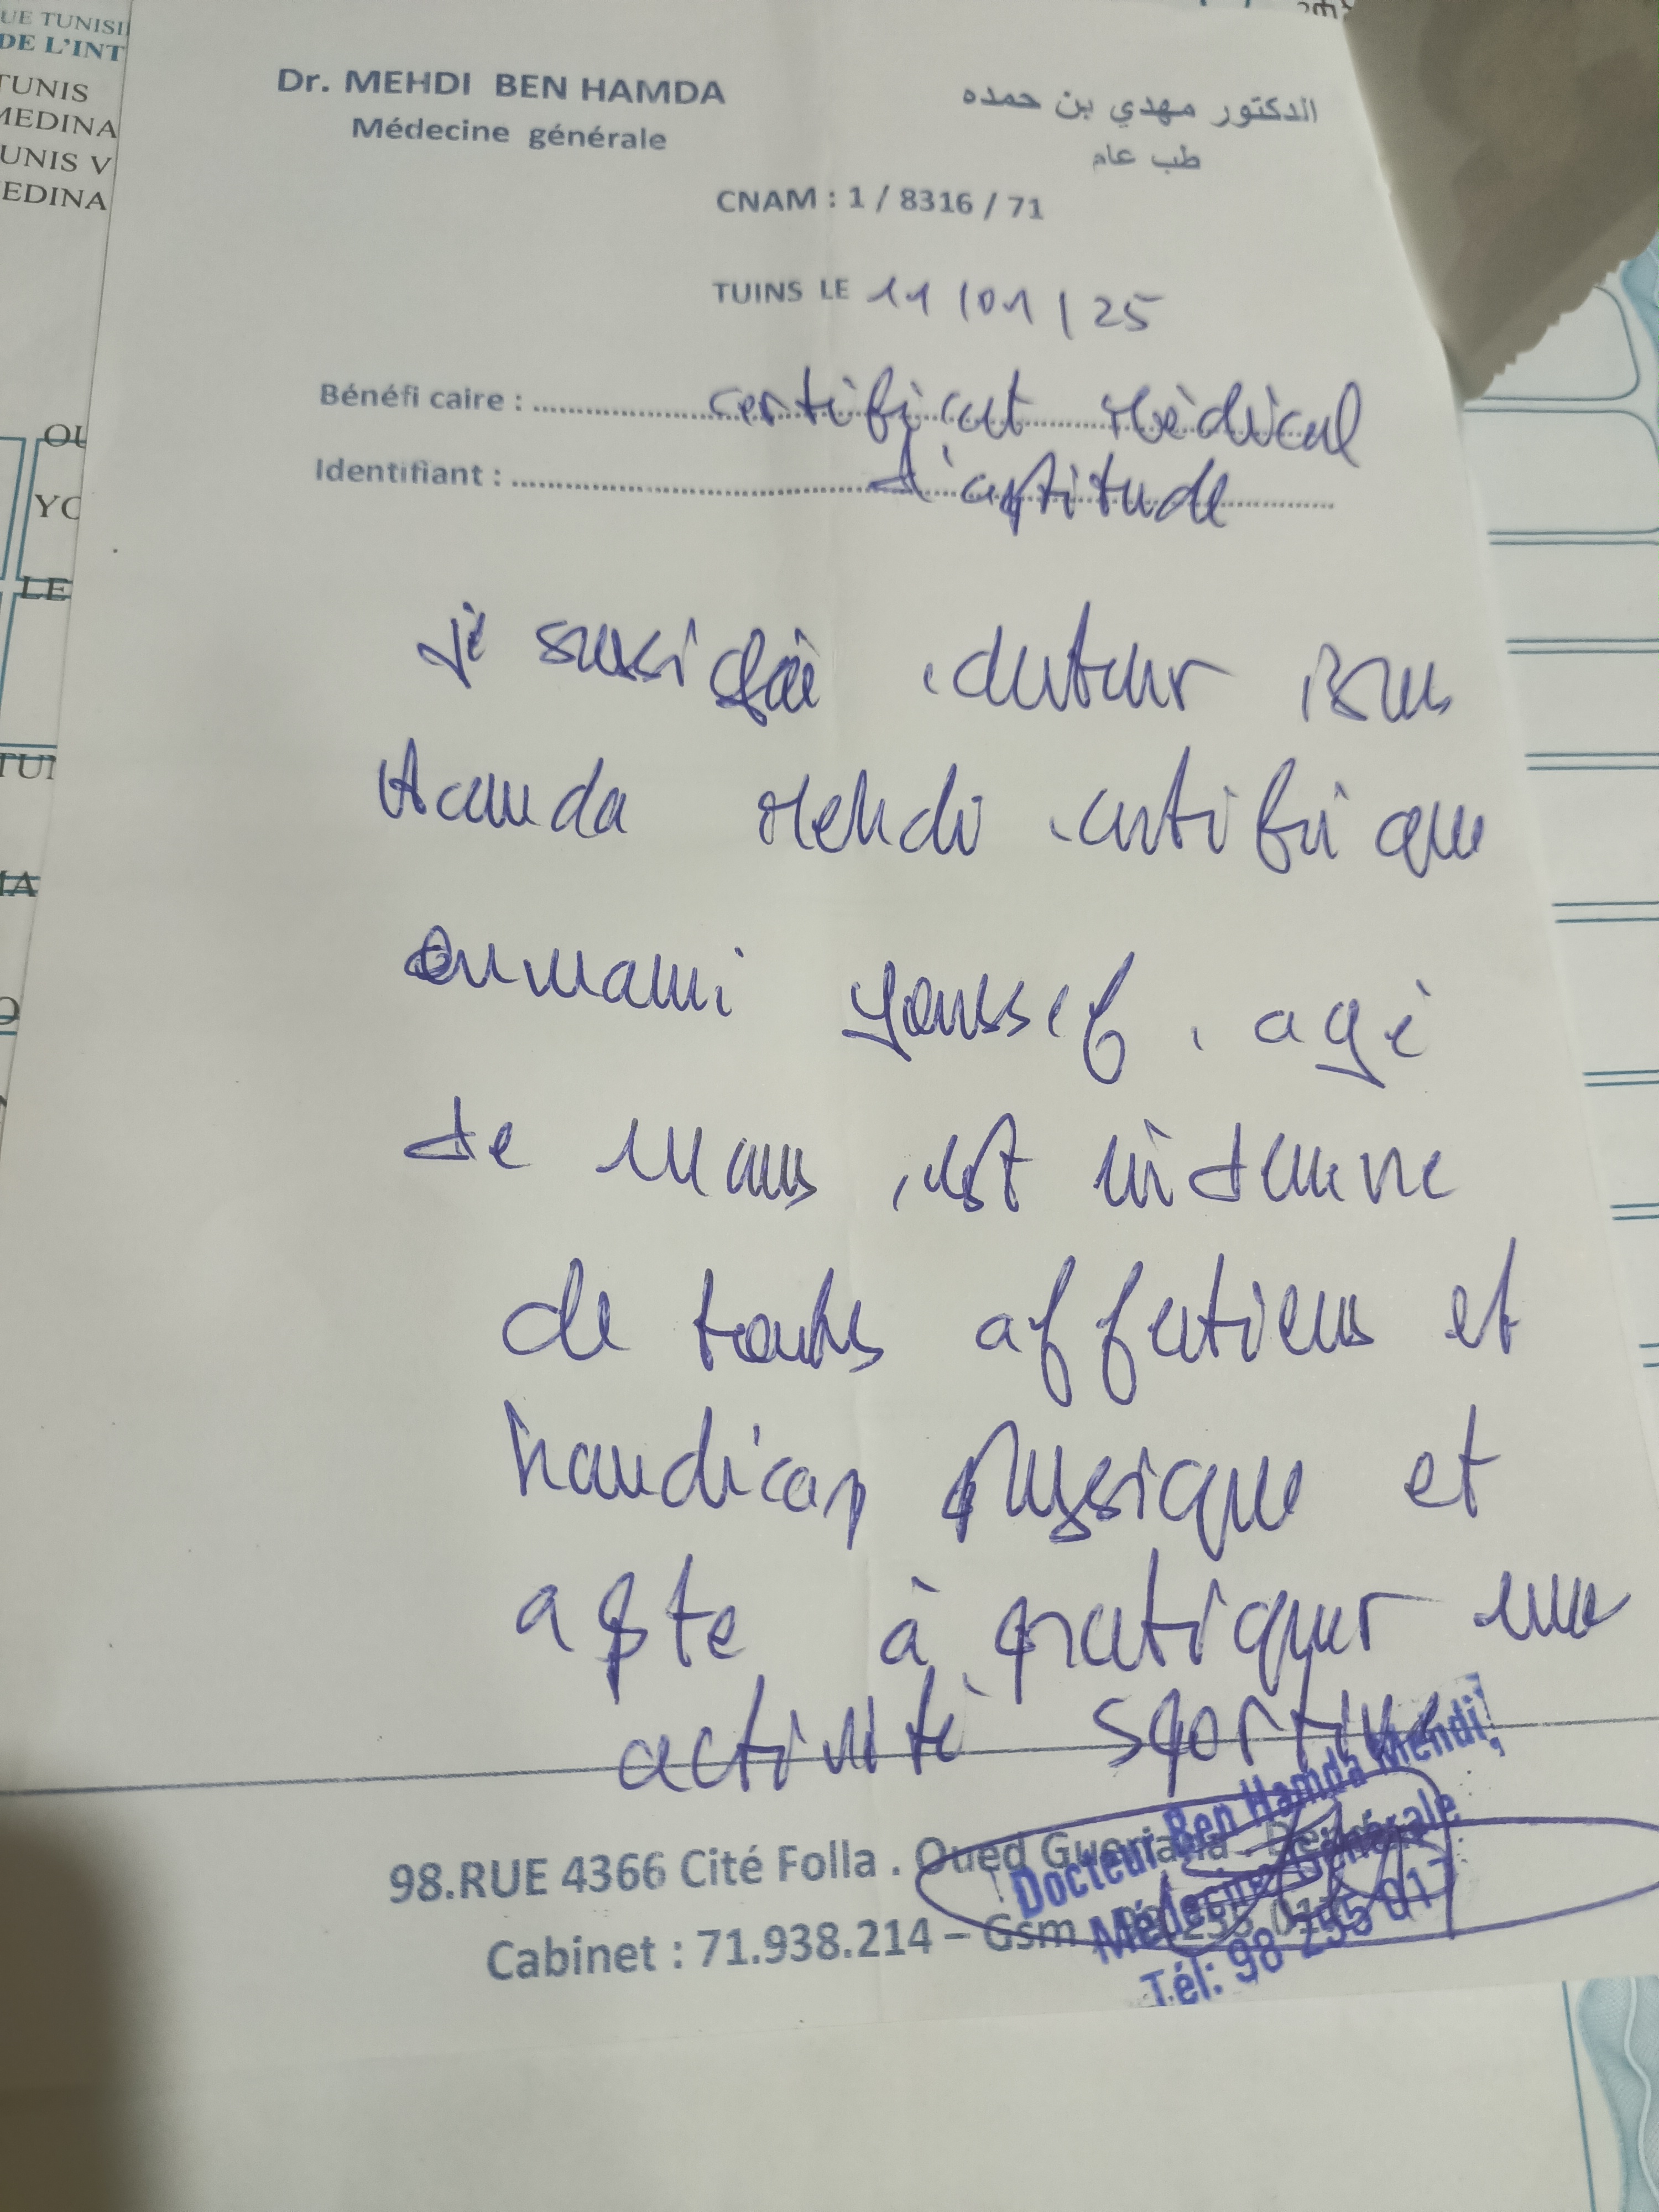 UE TUNISI
DE L'INT
TUNIS
MEDINA
UNIS V
EDINA
OU
YO
LE
TUI
IA
Dr. MEHDI BEN HAMDA
الدكتور مهدي بن حمده
Médecine générale
طب عام
CNAM : 1 / 8316 / 71
TUINS LE 11/01/25
Bénéfi caire : certificat Médical
Identifiant : d'aptitude
Je docteur
Hamda Mehdi certifie que
Youssef, agé
de ans, est indemne
de toutes affections et
handicap physique et
apte à pratiquer une
activité sportive
98.RUE 4366 Cité Folla . Oued Gueriana
Cabinet : 71.938.214 – Gsm
Docteur Ben Hamda Mehdi
Médecine Générale
Tél: 98 255 017